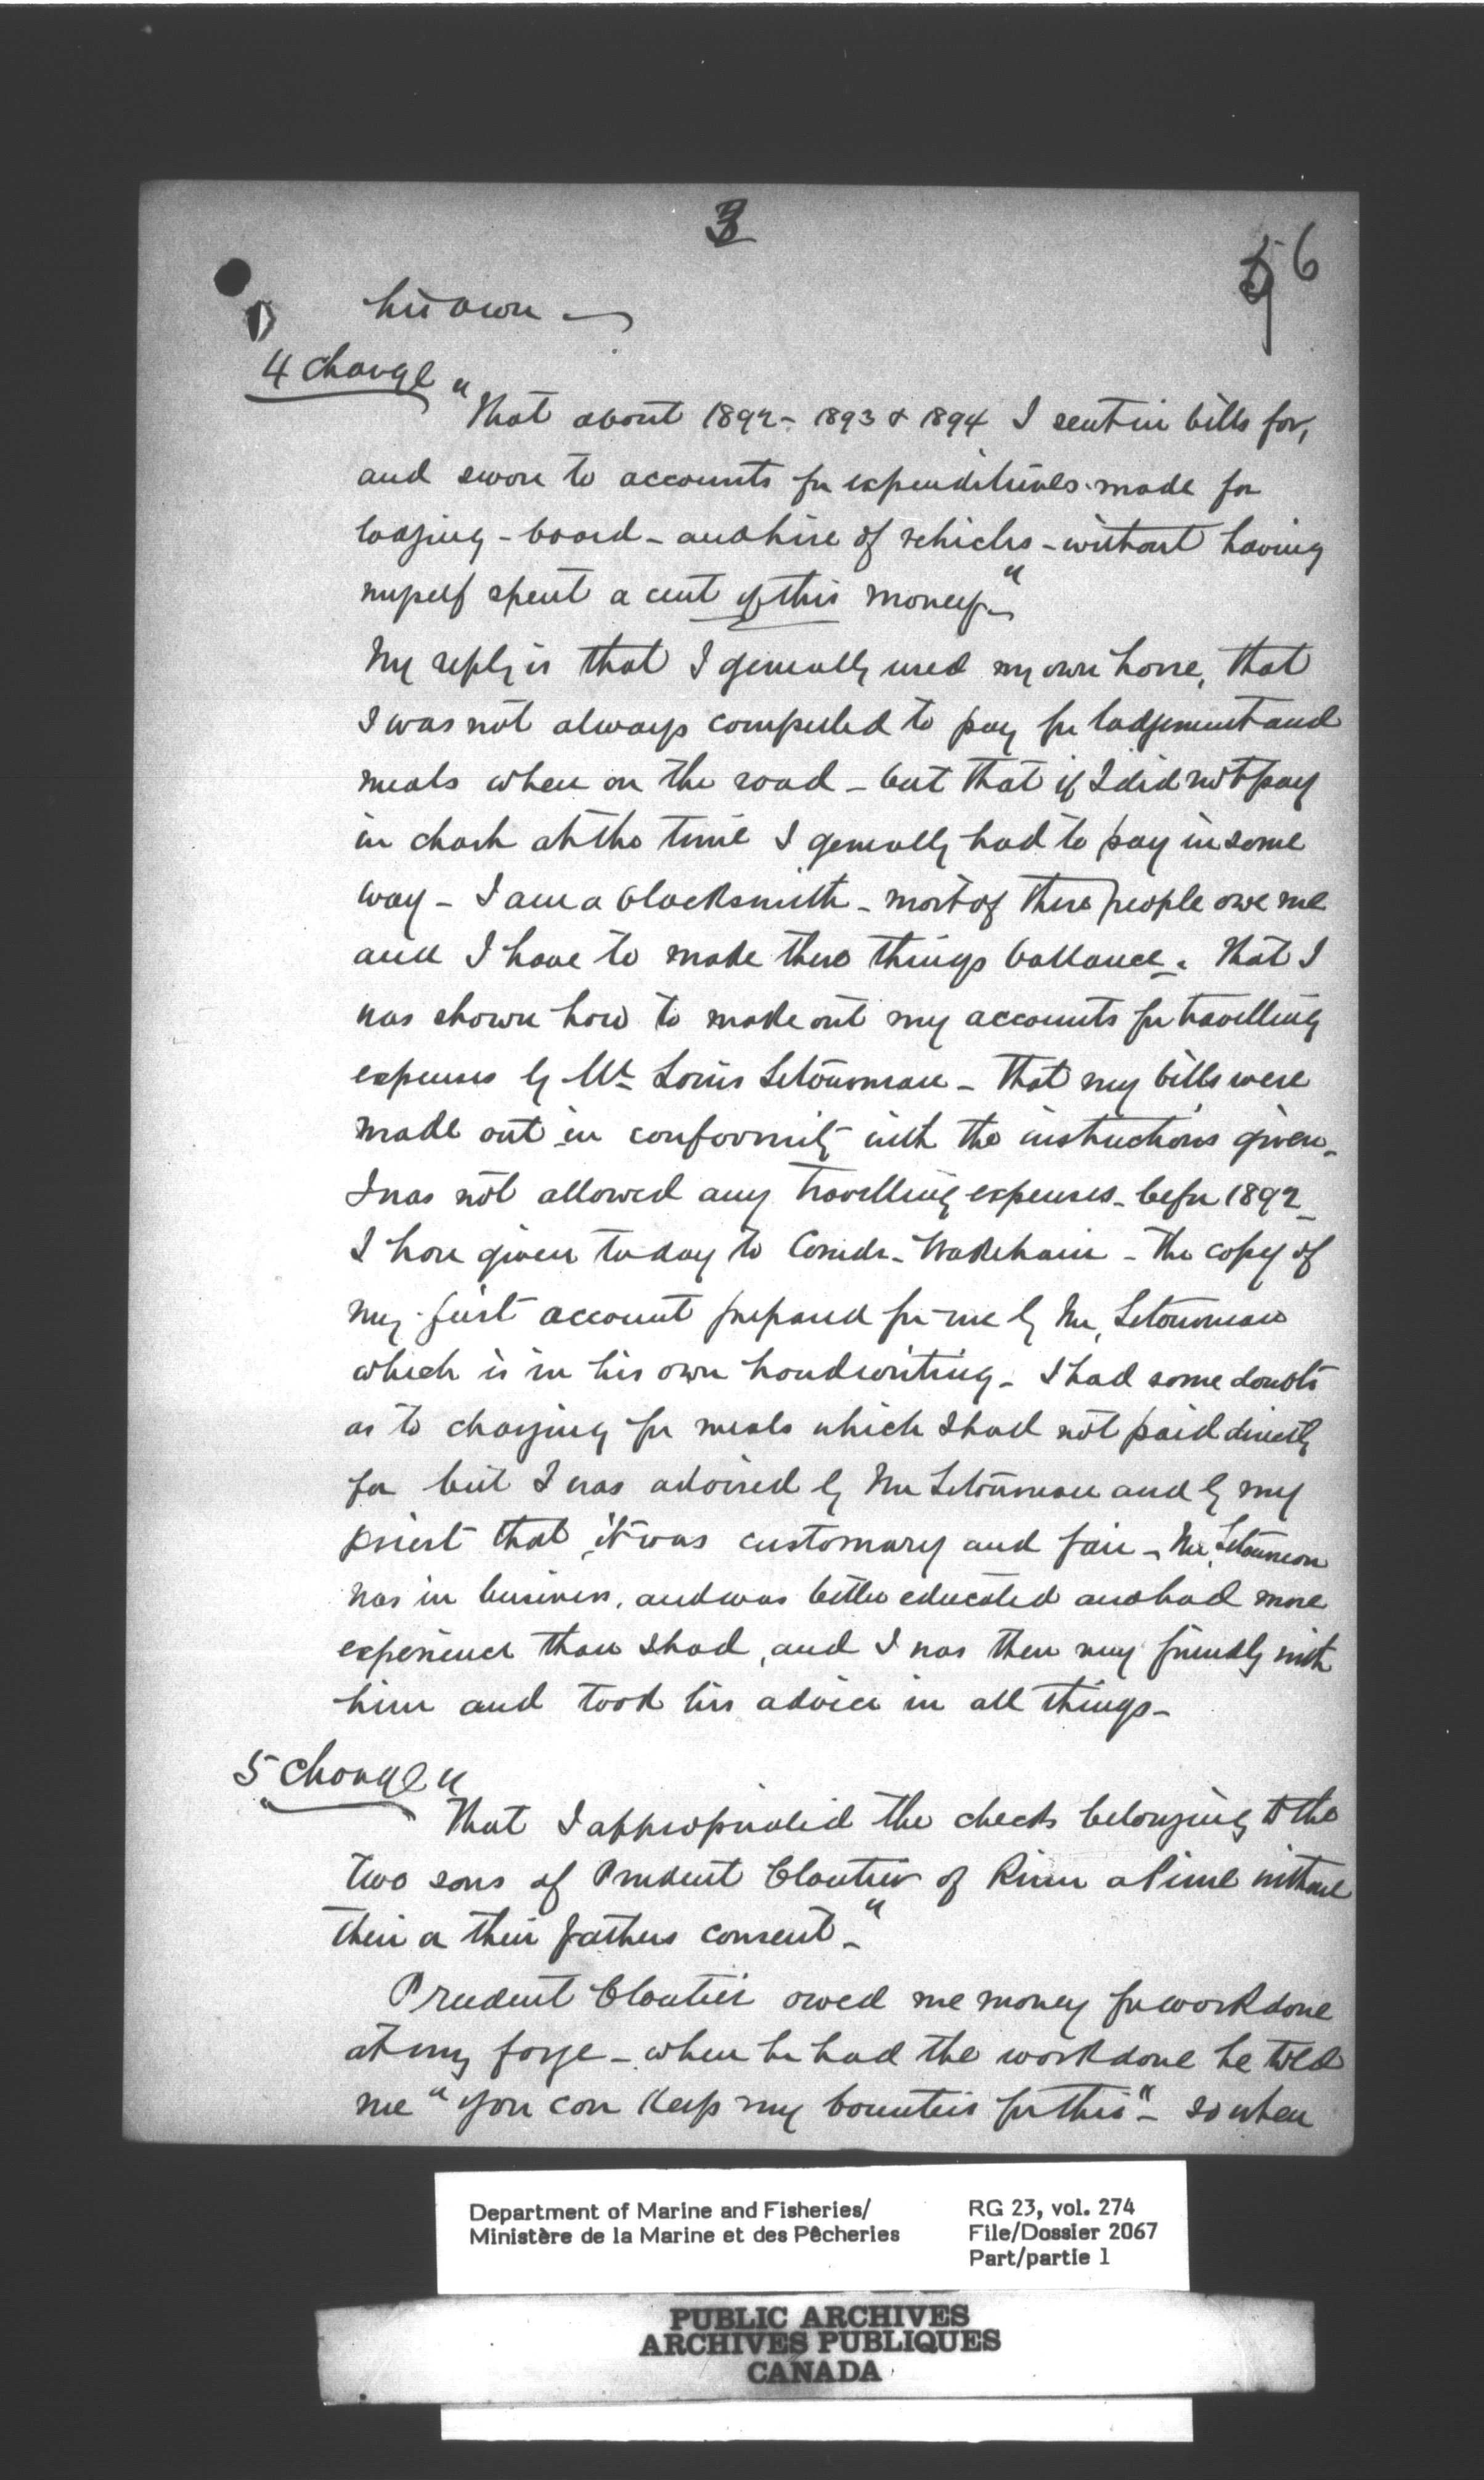 3
56
his own
4 Charge
"That about 1892 - 1893 & 1894 I sent in bills for,
and swore to accounts for expenditures made for
lodging - board - and hire of vehicles - without having
myself spent a cent of this money"
My reply is that I generally used my own horse, that
I was not always compelled to pay for lodgement and
meals when on the road - but that if I did not pay
in chash at the time I generally had to pay in some
way - I am a blacksmith - most of these people owe me
and I have to make these things ballance. That I
was shown how to make out my accounts for travelling
expenses by Mr Louis Letourneau - That my bills were
made out in conformity with the instructions given -
I was not allowed any travelling expenses - before 1892 -
I have given today to Comdr. Wakeham - the copy of
my first account prepared for me by Mr. Letourneau
which is in his own handwriting - I had some doubts
as to charging for meals which I had not paid directly
for but I was advised by Mr Letourneau and by my
priest that it was customary and fair - Mr. Letourneau
was in business, and was better educated and had more
experience than I had, and I was then very friendly with
him and took his advice in all things -
5 Charge "
That I appropriated the checks belonging to the
two sons of Prudent Cloutier of River a Pime without
their or their fathers consent - "
Prudent Cloutier owed me money for work done
at my forge - when he had the work done he told
me "you can keep my bounties for this" - so when
Department of Marine and Fisheries/ RG 23, vol. 274
Ministère de la Marine et des Pêcheries File/Dossier 2067
Part/partie 1
PUBLIC ARCHIVES
ARCHIVES PUBLIQUES
CANADA